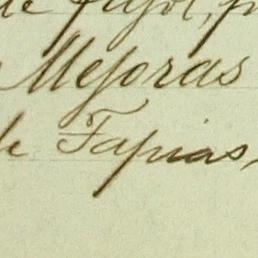 de Fijol, p
Mejoras
de Tapias,